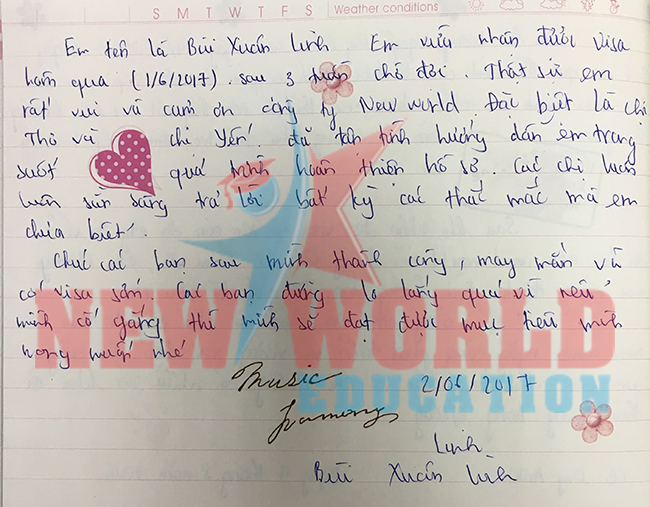 S M T W T F S Weather conditions
Em tên là Bùi Xuân Linh Em vừa nhận được visa
hôm qua (1/6/2017). sau 3 tuần chờ đợi. Thật sự em
rất vui và cảm ơn công ty New world. Đặc biệt là chị
Thỏ và chị Yến. đã tận tình hướng dẫn em trong
suốt quá trình hoàn thiện hồ sơ. Các chị luôn
luôn sẵn sàng trả lời bất kỳ các thắc mắc mà em
chưa biết.
Chúc các bạn sau mình thành công, may mắn và
có visa sớm. Các bạn đừng lo lắng quá vì nếu
mình cố gắng thì mình sẽ đạt được mục tiêu mình
mong muốn nhé
NEW WORLD
EDUCATION
Music 2/06/2017
Linh
Bùi Xuân Linh